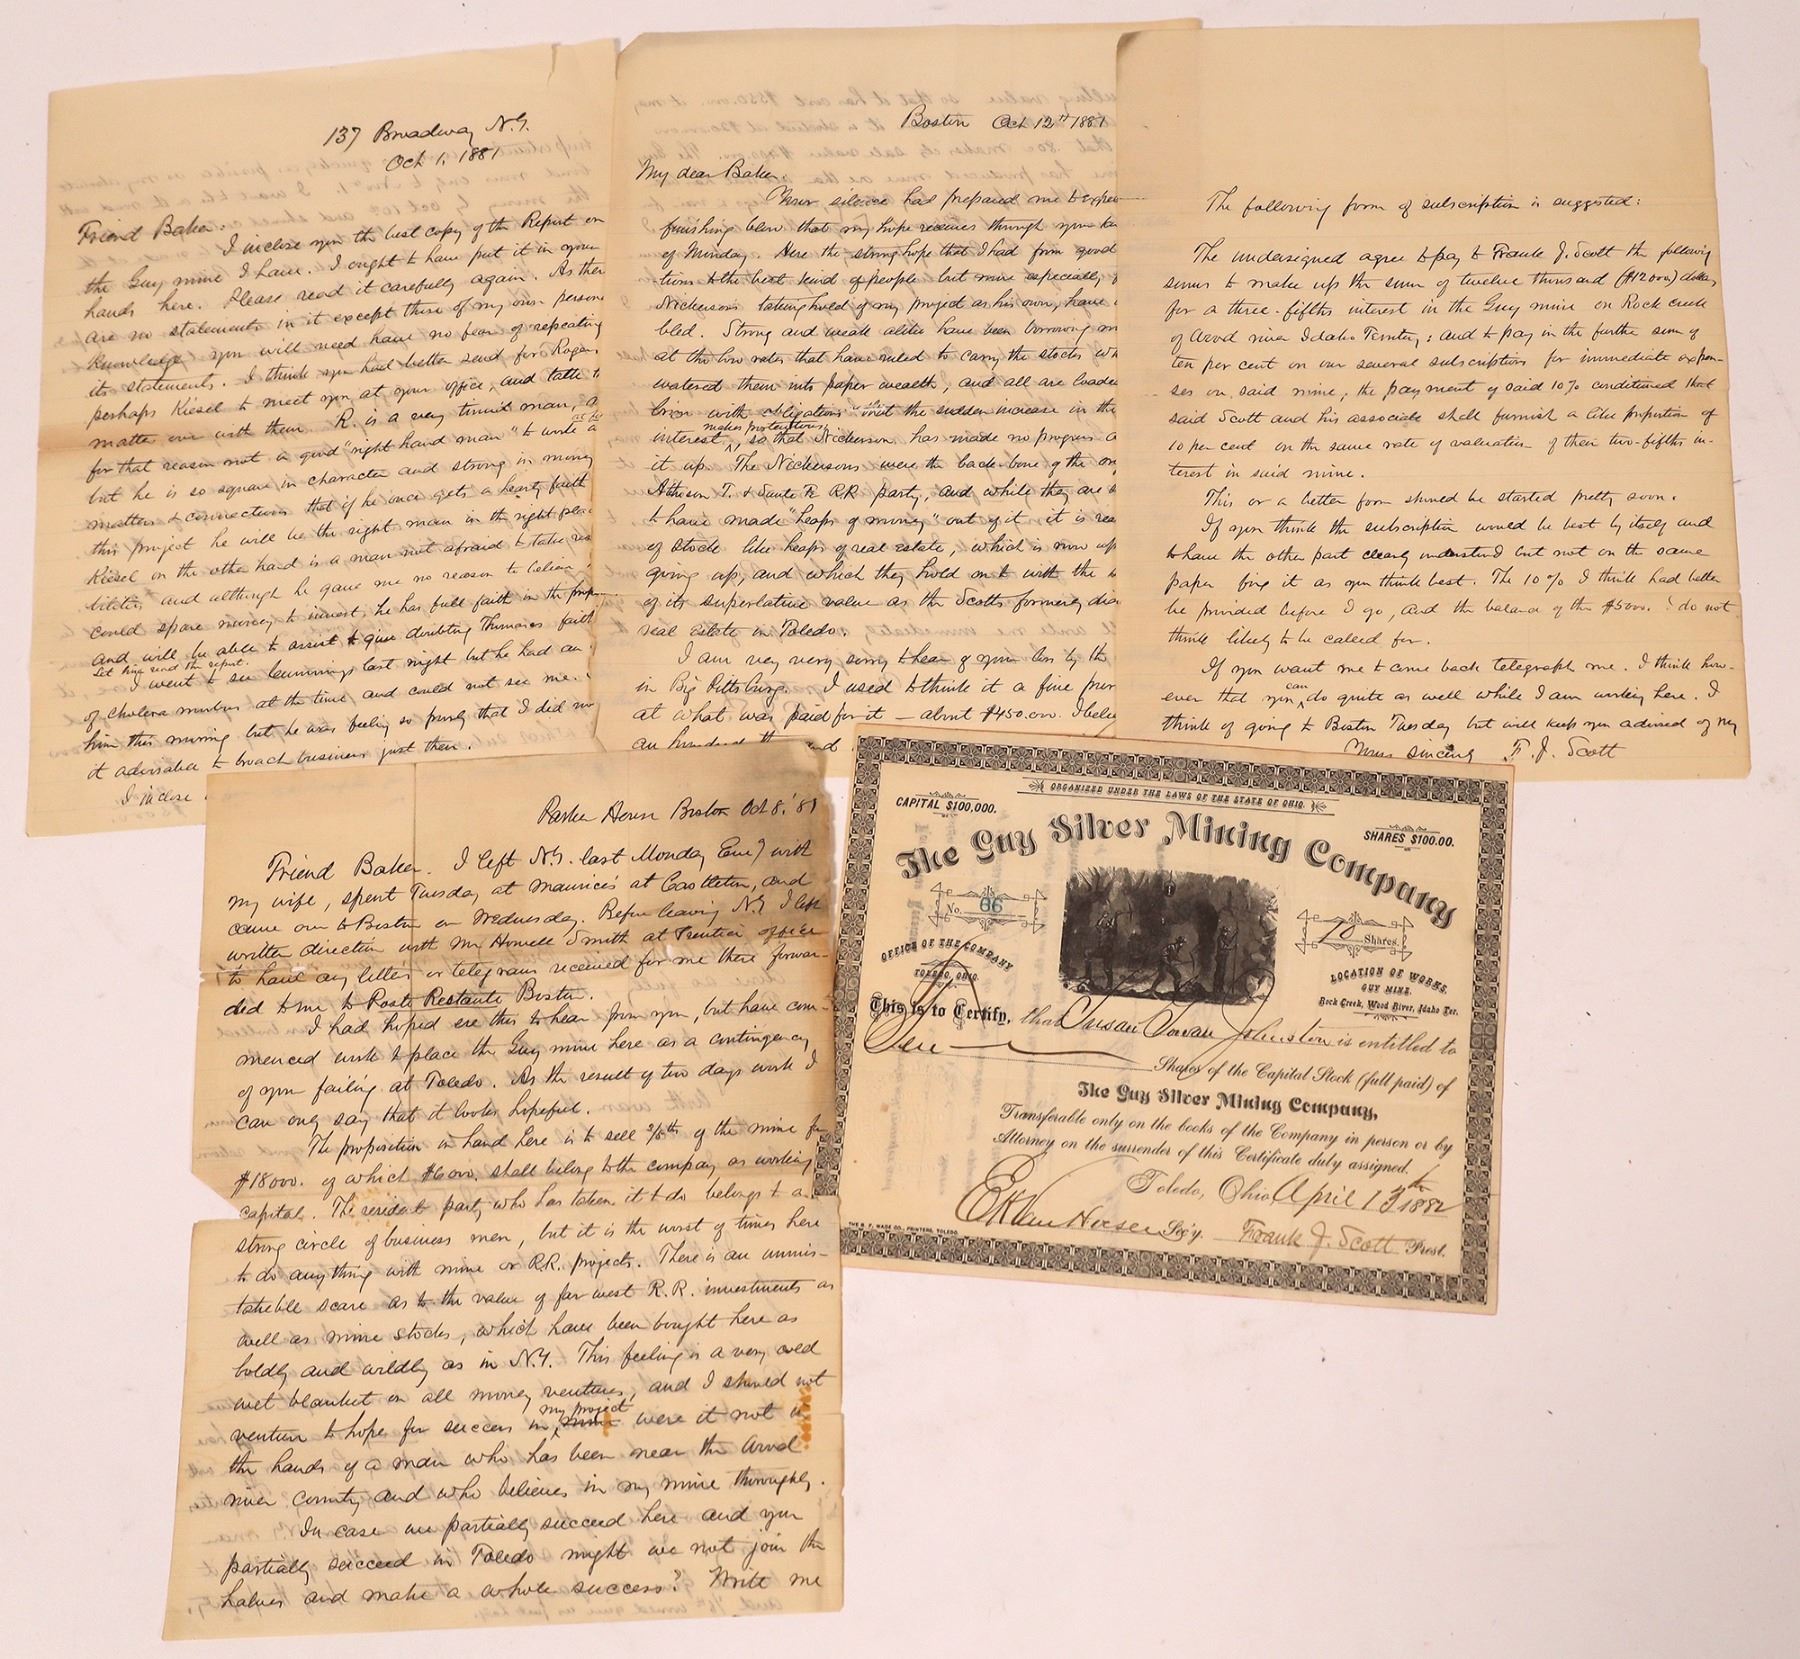 137 Broadway N.Y.
Oct 1, 1881
Friend Baker.
I inclose you the best copy of the Report on
the Guy mine I have. I ought to have put it in your
hands here. Please read it carefully again. As ther
are no statements in it except those of my own person
knowledge you will need have no fear of repeating
its statements. I think you had better send for Rogers
perhaps Kiesel to meet you at your office, and talk t
matter over with them. R. is a very timid man, a
for that reason not a good "right hand man" to write a
but he is so square in character and strong in money
matters & connections that if he once gets a hearty faith
this project he will be the right man in the right plac
Kiesel on the other hand is a man not afraid to take res
bilities and although he gave me no reason to believe
could spare money to invest, he has full faith in the prop
and will be able to assist to give doubting Thomases faith
Let him read the report.
I went to see Cummings last night but he had an
of cholera morbus at the time and could not see me.
him this morning but he was feeling so poorly that I did no
it advisable to broach business just then.
I inclose
Boston Oct 12th 1881
My dear Baker.
Your silence had prepared me to expec
finishing blow that my hope receives through your
of Monday. Here the strong hope that I had from good
tions to the best kind of people but more especially
Nickersons taking hold of my project as his own, have
bled. Strong and weak alike have been borrowing
at the low rates that have ruled to carry the stocks wh
watered them into paper wealth, and all are loade
with obligations that the sudden increase in the
makes portentious,
interest, so that Nickerson has made no progress
it up. The Nickersons were the back-bone of the
Atchison T. & Santa Fe RR party, and while they are
to have made "heaps of money" out of it it is
of stock like heaps of real estate, which is now up
going up, and which they hold on to with the
of its superlative value as the Scotts formerly
real estate in Toledo.
I am very very sorry to hear of your loss by the
in Big Pittsburg. I used to think it a fine
at what was paid for it — about $450.000. I
an hundred
The following form of subscription is suggested:
The undersigned agree to pay to Frank J. Scott the following
sums to make up the sum of twelve thousand ($12000) dollars
for a three-fifths interest in the Guy mine on Rock creek
of Wood river Idaho Territory; and to pay in the further sum of
ten per cent on our several subscriptions for immediate expen-
ses on said mine, the payment of said 10% conditioned that
said Scott and his associate shall furnish a like proportion of
10 per cent on the same rate of valuation of their two-fifths in-
terest in said mine.
This or a better form should be started pretty soon.
If you think the subscription would be best by itself and
to have the other part clearly understood but not on the same
paper fix it as you think best. The 10% I think had better
be provided before I go, and the balance of the $5000. I do not
think likely to be called for.
If you want me to come back telegraph me. I think how-
ever that you can do quite as well while I am working here. I
think of going to Boston Tuesday but will keep you advised of my
Yours sincerely F. J. Scott
Parker House Boston Oct 8, '81
Friend Baker. I left N.Y. last Monday Eve'g with
my wife, spent Tuesday at Maurice's at Castleton, and
came on to Boston on Wednesday. Before leaving N.Y I left
written direction with Mr Howell Smith at office
to have any letters or telegrams received for me there forwar-
ded to me to Poste Restante Boston.
I had hoped ere this to hear from you, but have com-
menced work to place the Guy mine here as a contingency
of your failing at Toledo. As the result of two days work I
can only say that it looks hopeful.
The proposition in hand here is to sell 3/5th of the mine for
$18000. of which $6000. shall belong to the company as working
capital. The resident party who has taken it to do belongs to a
strong circle of business men, but it is the worst of times here
to do anything with mine or R.R. projects. There is an unmis-
takeble scare as to the value of far west R.R. investments as
well as mine stocks, which have been bought here as
boldly and wildly as in N.Y. This feeling is a very cold
wet blanket on all money ventures, and I should not
my project
venture to hope for success in, were it not in
the hands of a man who has been near the Wood
river country and who believes in my mine thoroughly.
In case we partially succeed here and you
partially succeed in Toledo might we not join the
halves and make a whole success? Write me
ORGANIZED UNDER THE LAWS OF THE STATE OF OHIO.
CAPITAL $100,000.
SHARES $100.00.
The Guy Silver Mining Company
No. 66
10 Shares.
OFFICE OF THE COMPANY
TOLEDO, OHIO.
LOCATION OF WORKS,
GUY MINE.
Rock Creek, Wood River, Idaho Ter.
This is to Certify, that Susan Swan Johnston is entitled to
Ten Shares of the Capital Stock (full paid) of
The Guy Silver Mining Company,
Transferable only on the books of the Company in person or by
Attorney on the surrender of this Certificate duly assigned.
Toledo, Ohio, April 13th 1882
E K Van Hoesen Sec'y. Frank J. Scott Prest.
THE B. F. WADE CO., PRINTERS, TOLEDO.